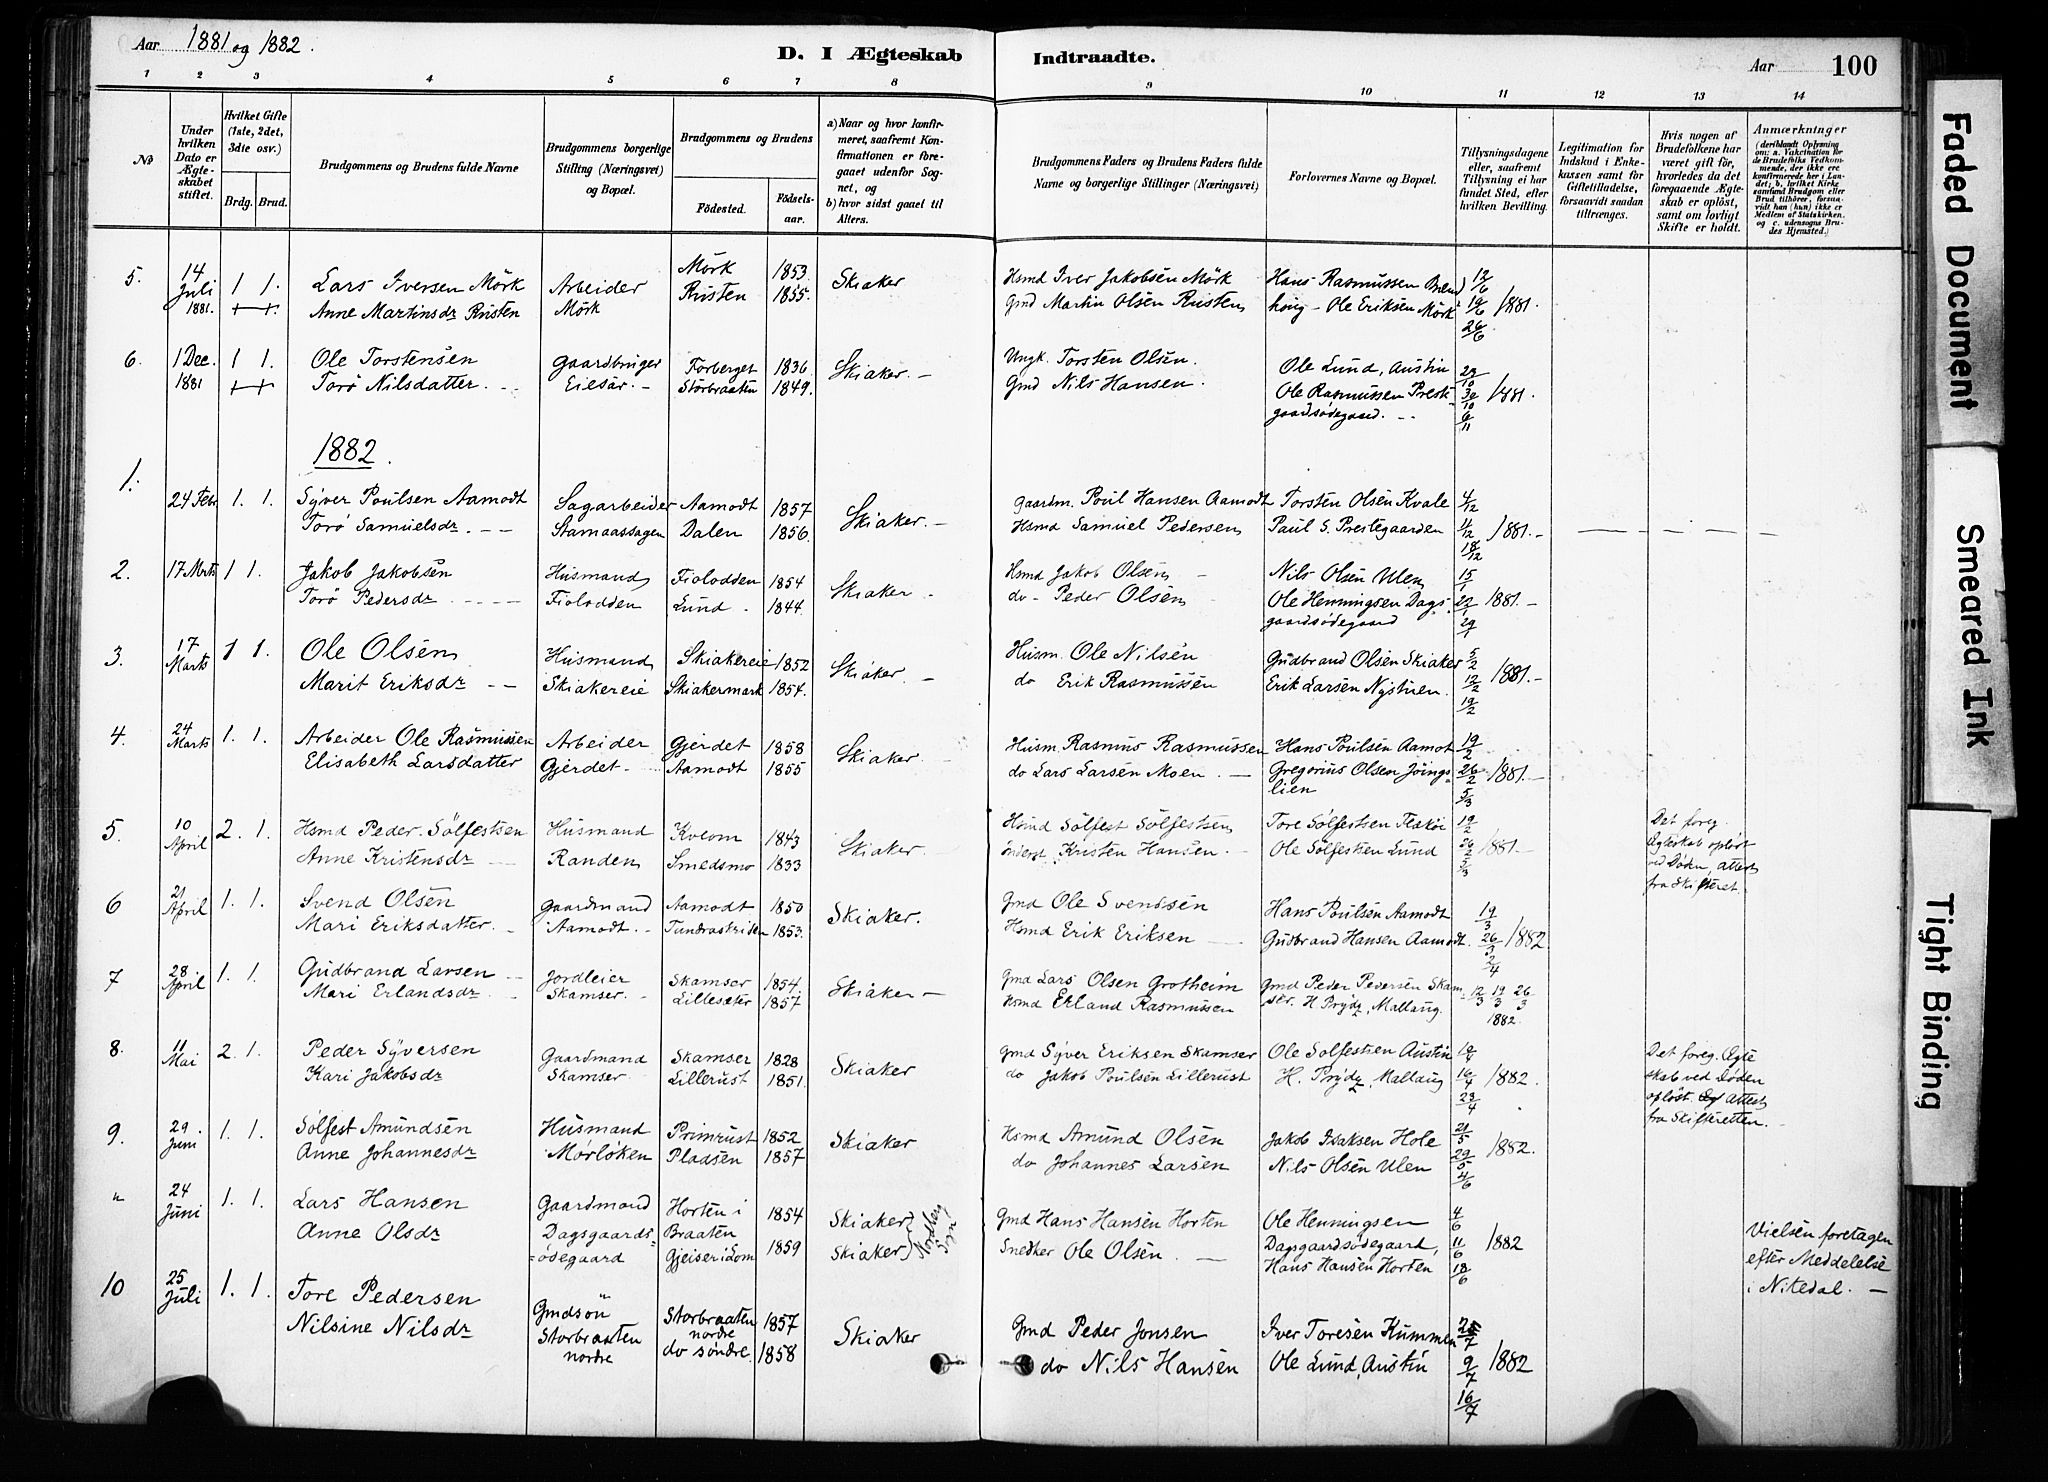 Aar 1881 og 1882. D. I Ægteskab Indtraadte. Aar 100
1 2 3 4 5 6 7 8 9 10 11 12 13 14
No
Under hvilken Dato er Ægteskabet stiftet.
Hvilket Gifte (1ste, 2det, 3die osv.)
Brdg. Brud.
Brudgommens og Brudens fulde Navne
Brudgommens borgerlige Stilling (Næringsvei) og Bopæl.
Brudgommens og Brudens
Födested. Födselsaar.
a) Naar og hvor konfirmeret, saafremt Konfirmationen er foregaaet udenfor Sognet, og
b) hvor sidst gaaet til Alters.
Brudgommens Faders og Brudens Faders fulde Navne og borgerlige Stillinger (Næringsvei)
Forlovernes Navne og Bopæl.
Tillysningsdagene eller, saafremt Tillysning ei har fundet Sted, efter hvilken Bevilling.
Legitimation for Indskud i Enkekassen samt for Giftetilladelse, forsaavidt saadan tiltrænges.
Hvis nogen af Brudefolkene har været gift för, hvorledes da det foregaaende Ægteskab er oplöst, samt om lovligt Skifte er holdt.
Anmærkninger
(deriblandt Oplysning om: a. Vakcination for de Brudefolks Vedkommende, der ikke ere konfirmerede her i Landet; b. hvilket Kirkesamfund Brudgom eller Brud tilhörer, forsaavidt han (hun) ikke er Medlem af Statskirken, og c. udensogns Brudes Hjemsted.)
5. 14 Juli 1881. 1 1. Lars Iversen Mörk Arbeider Mörk 1853. Skiaker Hsmd Iver Jakobsen Mörk Hans Rasmussen 12/6
Anne Martinsdr Rusten Mörk Rusten 1855. Gmd Martin Olsen Rusten houg - Ole Eriksen Mörk 19/6 1881.
26/6.
6. 1 Dec. 1881 1 1. Ole Torstensen Gaardbruger Forberget 1836. Skiaker. - Ungk. Torsten Olsen. Ole Lund, Austin
Torö Nilsdatter. Storbraaten 1849. Gmd Nils Hansen. Ole Rasmussen Prest- 30/10 1881.
gaardsödegaard. 6/11
1882.
1. 24 Febr. 1. 1. Syver Poulsen Aamodt Sagarbeider Aamodt 1857 Skiaker. - Gaardm. Poul Hansen Aamodt Torsten Olsen Kvale 4/12
Torö Samuelsdr. - - Stamaassagen Dalen 1856. Hsmd Samuel Pedersen Paul S. Prestegaarden 11/12 1881. -
18/12
2. 17 Mrts 1 1. Jakob Jakobsen Husmand Fiolodden 1854 Skiaker - Hsmd Jakob Olsen Nils Olsen Ulen 15/1
Torö Pedersdr Fiolodden Lund - 1844. do - Peder Olsen Ole Henningsen Dags- 22/1 1881. -
gaardsödegaard 29/1
3. 17 Marts 1 1. Ole Olsen Husmand Skiakereie 1852 Skiaker. - Husm. Ole Nilsen Gudbrand Olsen Skiaker 5/2
Marit Eriksdr - - Skiakereie Skiakermark 1854. do Erik Rasmussen Erik Larsen Nystuen. 12/2 1881. -
19/2
4. 24 Marts 1. 1. Arbeider Ole Rasmussen Arbeider Gjerdet 1858 Skiaker Husm. Rasmus Rasmussen Hans Poulsen Aamot 19/2
Elisabeth Larsdatter Gjerdet Aamodt 1855 do Lars Larsen Moen. - Gregorius Olsen Jöings- 26/2 1881. -
lien 5/3
5. 10 April 2. 1. Hsmd Peder Sölfestsen Husmand Kveom 1843 Skiaker Hsmd Sölfest Sölfestsen Tore Sölfestsen 19/2 Det foreg.
Anne Kristensdr Randen Smedsmo 1833 Kristen Hansen. Ole Sölfestsen Lund 26/2 1881 - Ægteskab oplöst
5/3 ved Döden, attest
fra Skifteret.
6 21 April 1. 1. Svend Olsen Gaardmand Aamodt 1850 Skiaker. Gmd Ole Svendsen Hans Poulsen Aamodt 19/3
Mari Eriksdatter. Aamodt. - 1853. Hsmd Erik Eriksen Gudbrand Hansen Aamodt. 26/3 1882
2/4
7 28 April 1. 1. Gudbrand Larsen Jordleier Skamser 1854. Skiaker - Gmd Lars Olsen Grotheim Gmd Peder Pedersen Skam- 12/3 19/3 26/3
Mari Erlandsdr. Skamser. Lillesæter 1857 Hsmd Erland Rasmussen ser. H. Prydz, Mallaug. 1882.
8. 11 Mai 2. 1. Peder Syversen Gaardmand Skamser 1828 Skiaker Gmd Syver Eriksen Skamser Ole Solfestsen Austin Det foreg. Ægte
Kari Jakobsdr Skamser Lillerust 1851. do Jakob Poulsen Lillerust H. Prydz, Mallaug 16/4 1882. skab ved Döden
23/4 oplöst. Attest
fra Skifteretten. -
9. 29. Juni 1. 1. Sölfest Amundsen Husmand Primrust 1852 Skiaker Hsmd Amund Olsen Jakob Isaksen Hole 21/5
Anne Johannesdr Mörlöken Pladsen 1857 do Johannes Larsen Nils Olsen Ulen 29/5 1882.
4/6
" 24 Juni 1. 1. Lars Hansen Gaardmand Horten i 1854 Skiaker Gmd Hans Hansen Horten Ole Henningsen 4/6
Anne Olsdr Dagsgaards- Braaten Skiaker Nordberg Sogn Snedker Ole Olsen - Dagsgaardsödegaard, 11/6 1882 Vielsen foretagen
ödegaard Gjeiser i Lom 1859 Hans Hansen Horten 18/6 efter Meddelelse
i Nitedal. -
10 25 Juli 1. 1. Tore Pedersen Gmdsön Storbraaten nordre 1857 Skiaker Gmd Peder Jonsen Iver Toresen Kummen
Nilsine Nilsdr Storbraaten nordre do söndre. 1858 do Nils Hansen Ole Lund, Austin 9/7 1882
16/7
Faded Document
Smeared Ink
Tight Binding